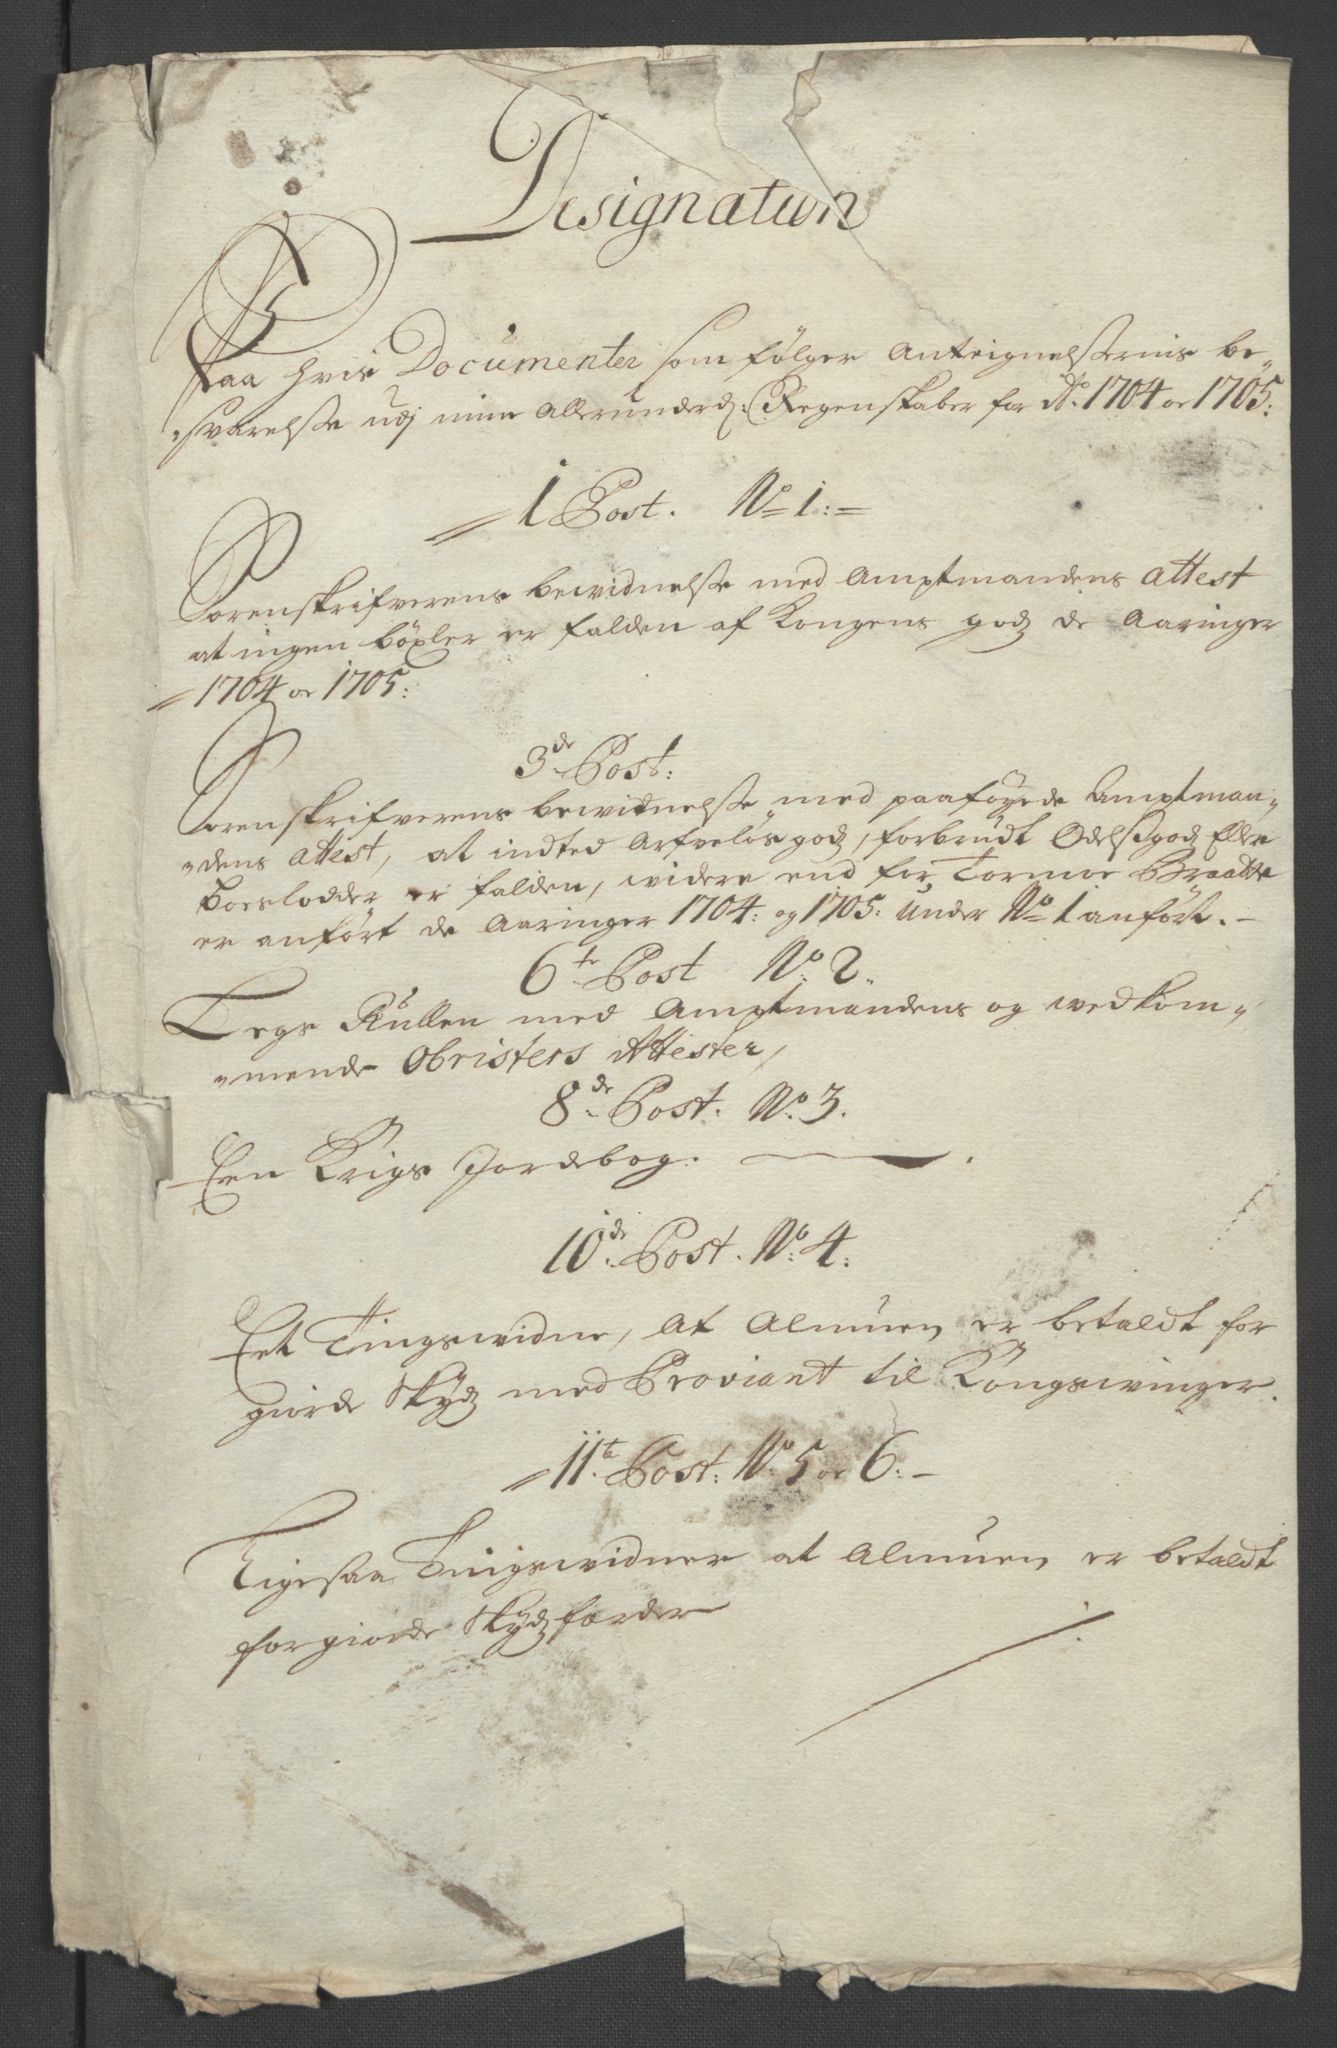 Designation
Paa hvis Documenter som følger Anteignelsernis be„
„svarelse udj mine Allerunderd: Regenskaber for Ao. 1704 oc 1705:
1 Post. No 1:=
Sorenskrifverens bewidnelse med Amptmandens attest
at ingen böxler er falden af Kongens godz de Aaringer
1704 oc 1705:
3de Post:
Sorenskrifverens bewidnelse med paaföyede Amptman„
„dens attest, at indted Arfvelös godz, forbrudt Odelsgodz Eller
boeslodder er falden, widere end for Tormoe Braatte
er anfört de Aaringer 1704: og 1705: under No 1 anfört. –
6te Post No. 2.
Legs Rullen med Amptmandens og wedkom„
„mende Obristers Attester,
8de Post. No. 3.
Een Krigs Jordebog.
10de Post. No. 4:
Eet Tingswidne, At Almuen er betaldt for
giorde Skydz med Proviant til Kongswinger.
11te Post: No. 5 oc 6: –
Ligesaa Tingswidner at Almuen er betaldt
for giorde Skydzfærder